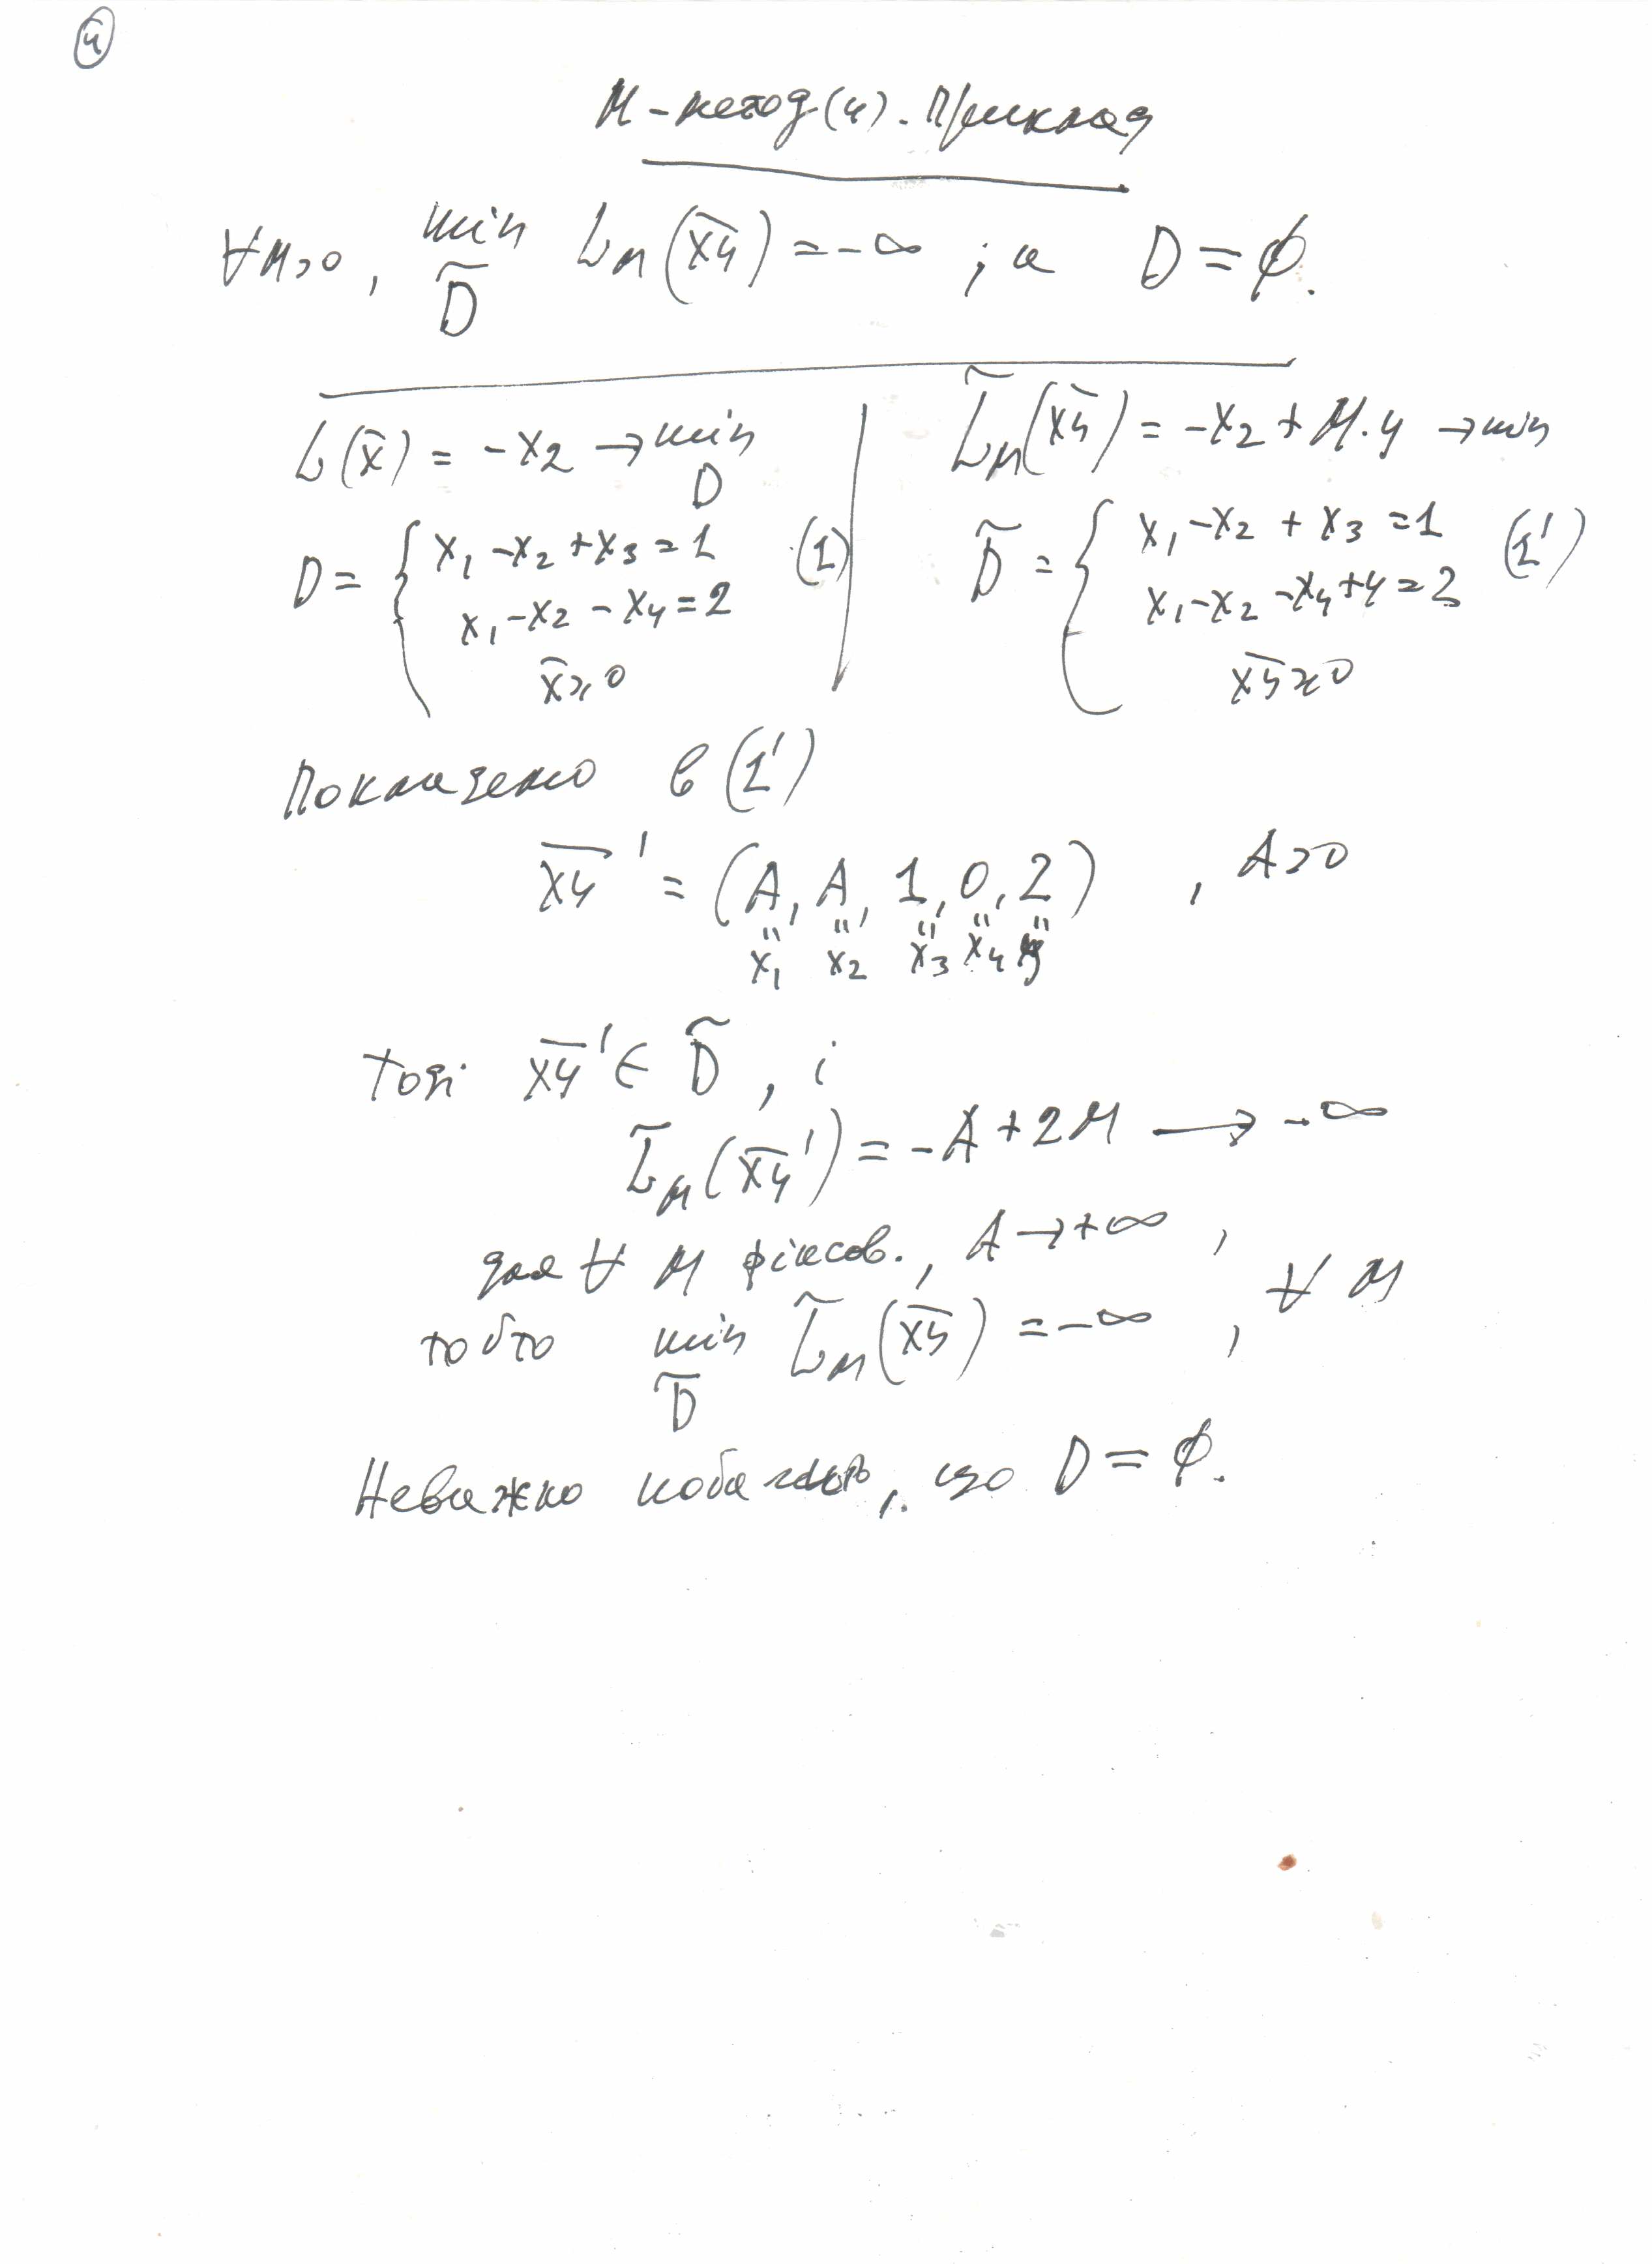 4
М-метод (4). Приклад
∀M>0, min L̃_M(x̄ȳ) = -∞ ; а D = ∅.
D̃
L(x̄) = -x₂ → min
D
D = { x₁ - x₂ + x₃ = 1
x₁ - x₂ - x₄ = 2 (1)
x̄ ≥ 0
L̃_M(x̄ȳ) = -x₂ + M·y → min
D̃ = { x₁ - x₂ + x₃ = 1
x₁ - x₂ - x₄ + y = 2 (1')
x̄ȳ ≥ 0
Покладемо в (1')
x̄ȳ' = (A, A, 1, 0, 2) , A>0
x₁ x₂ x₃ x₄ y
Тоді x̄ȳ' ∈ D̃, і
L̃_M(x̄ȳ') = -A + 2M → -∞
для ∀ M фіксов., A → +∞ ,
тобто min L̃_M(x̄ȳ) = -∞ , ∀ M
D̃
Неважко побачить, що D = ∅.